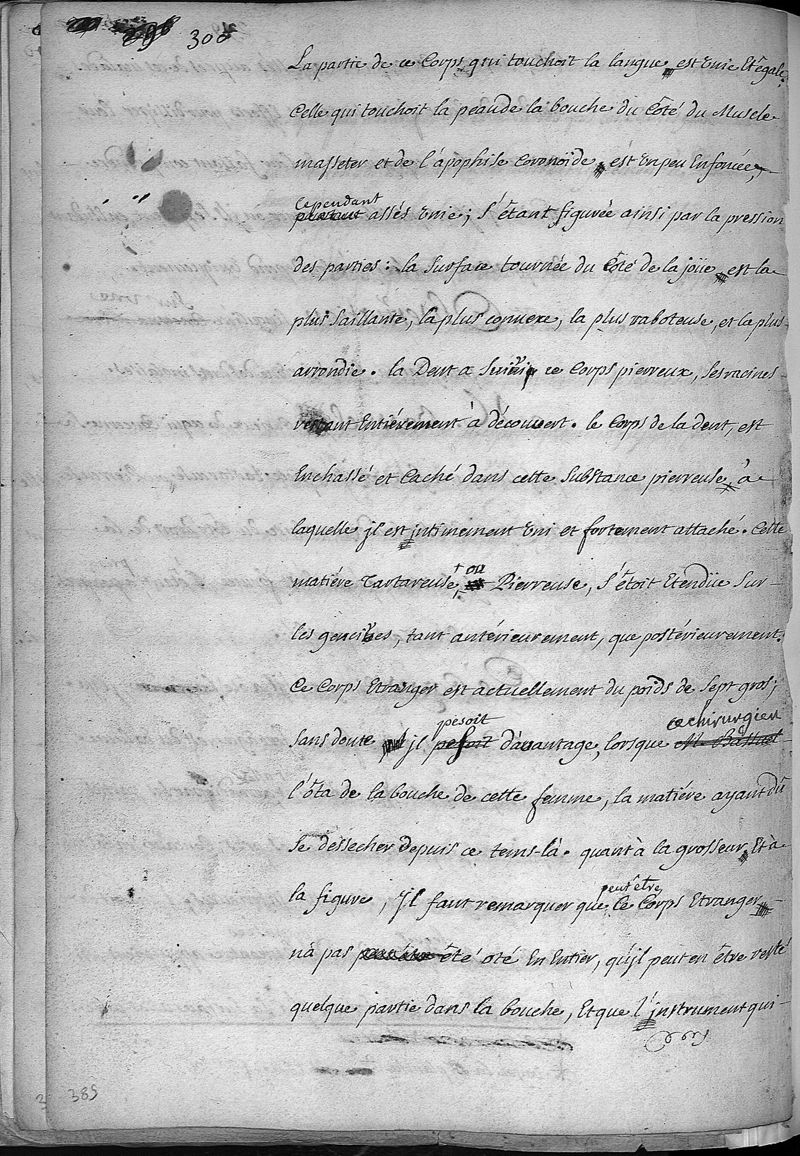 300
La partie de ce Corps qui touchoit la langue est Unie Et égale,
Celle qui touchoit la peau de la bouche du Côté du Muscle
masseter et de l'apophise Coronoïde, est Un peu Enfoncée,
cependant
assés Unie; s'étant figurée ainsi par la pression
des parties: la Surface tournée du côté de la joüe, est la
plus Saillante, la plus convexe, la plus raboteuse, et la plus
arrondie. la Dent a Suivi ce Corps pierreux, ses racines
restant Entiérement à découvert. le Corps de la dent, est
Enchassé et Caché dans cette Substance pierreuse, à
laquelle jl est jntimement Uni et fortement attaché. Cette
matiére Tartareuse, ou Pierreuse, s'étoit Etendüe Sur
les gencives, tant antérieurement, que postérieurement.
Ce Corps Etranger est actuellement du poids de Sept gros;
pesoit ce chirurgien
Sans doute jl pesoit d'avantage, lorsque M.
l'ôta de la bouche de cette femme, la matiére ayant dû
se dessécher depuis ce tems-là. quant à la grosseur, Et à
peut être
la figure, jl faut remarquer que Ce Corps Etranger
n'a pas été oté En Entier, qu'jl peut en être resté
quelque partie dans la bouche, Et que l'jnstrument qui
385